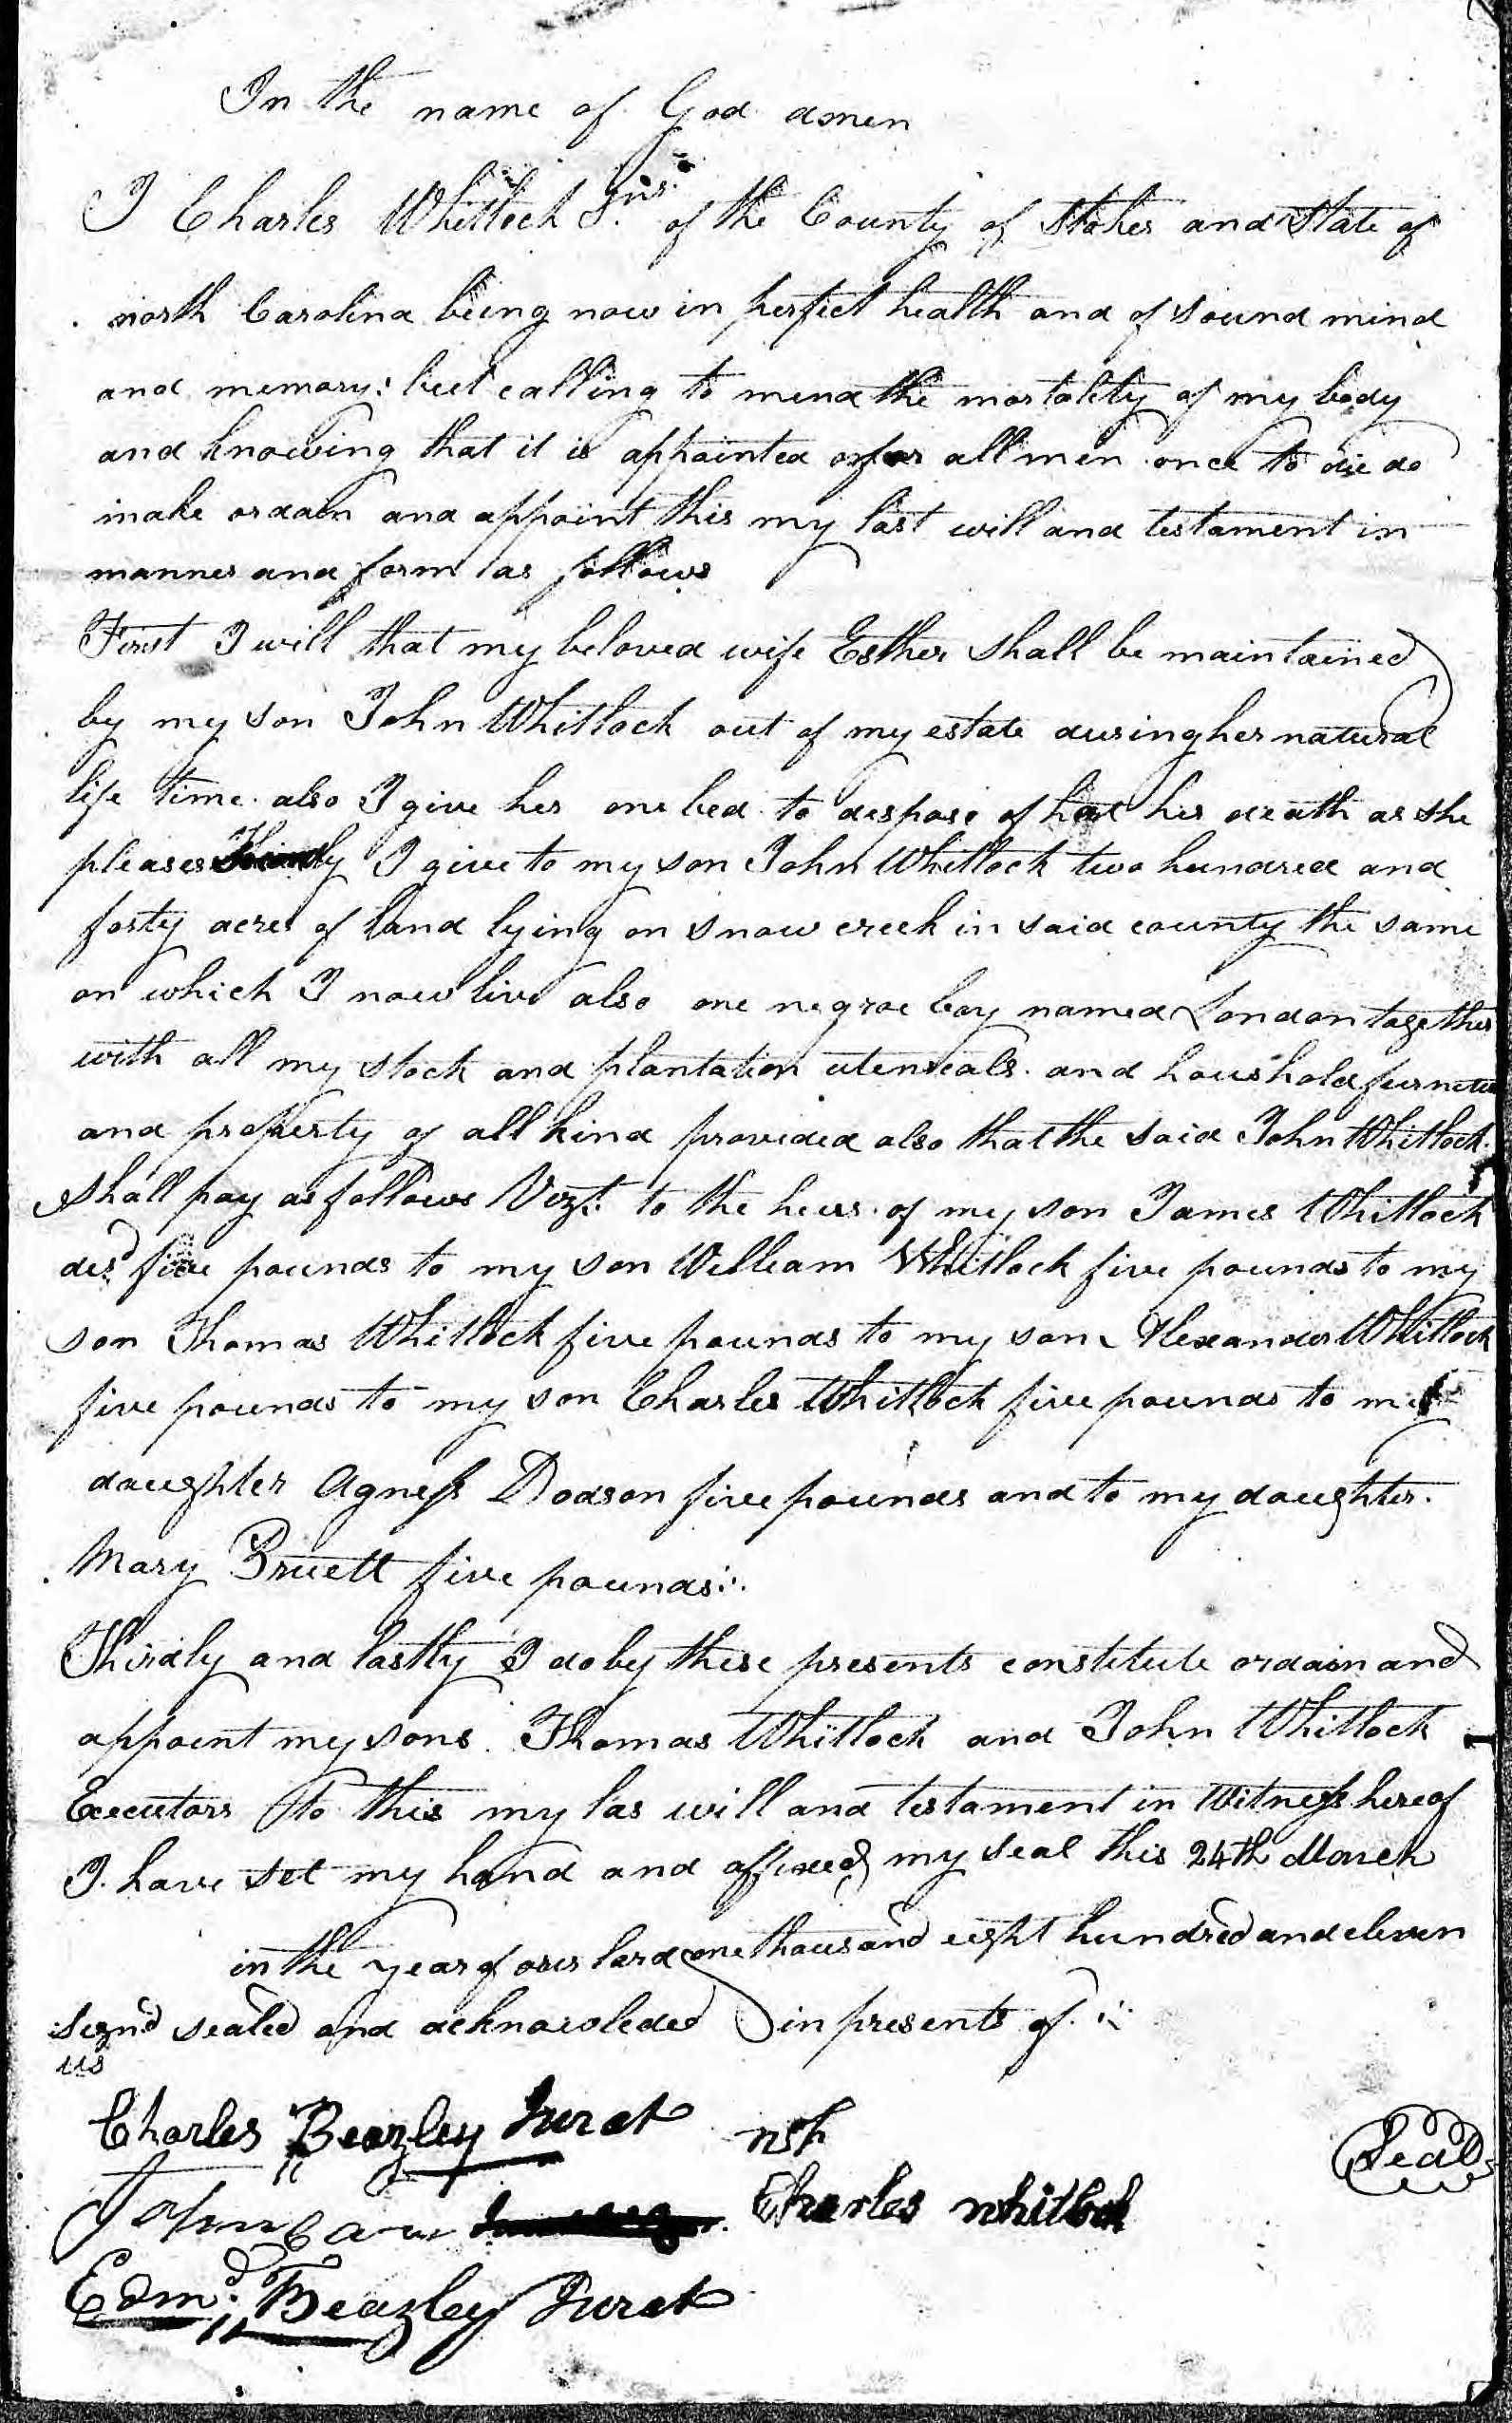 In the name of God amen
I Charles Whitlock Snr. of the County of Stokes and State of
north Carolina being now in perfect health and of sound mind
and memory: but calling to mind the mortality of my body
and knowing that it is appointed for all men once to die do
make ordain and appoint this my last will and testament in
manner and form as follows
First I will that my beloved wife Esther shall be maintained
by my son John Whitlock out of my estate during her natural
life time also I give her one bed to dispose of at her death as she
pleases I give to my son John Whitlock two hundred and
forty acres of land lying on snow creek in said county the same
on which I now live also one negroe boy named London together
with all my stock and plantation utensials and houshold furnetur
and property of all kind provided also that the said John Whitlock
shall pay as follows Vizt. to the heirs of my son James Whitlock
desd five pounds to my son William Whitlock five pounds to my
son Thomas Whitlock five pounds to my son Alexander Whitlock
five pounds to my son Charles Whitlock five pounds to my
daughter Agness Dodson five pounds and to my daughter
Mary Bruett five pounds
Thirdly and lastly I do by these presents constitute ordain and
appoint my sons Thomas Whitlock and John Whitlock
Executors to this my las will and testament in Witness hereof
I have set my hand and affixed my seal this 24th March
in the year of our lord one thousand eight hundred and eleven
Signd sealed and acknowleded in presents of
us
Charles Beazley Jurat
Charles Whitlock Seal
John
Edmd. Beazley Jurat